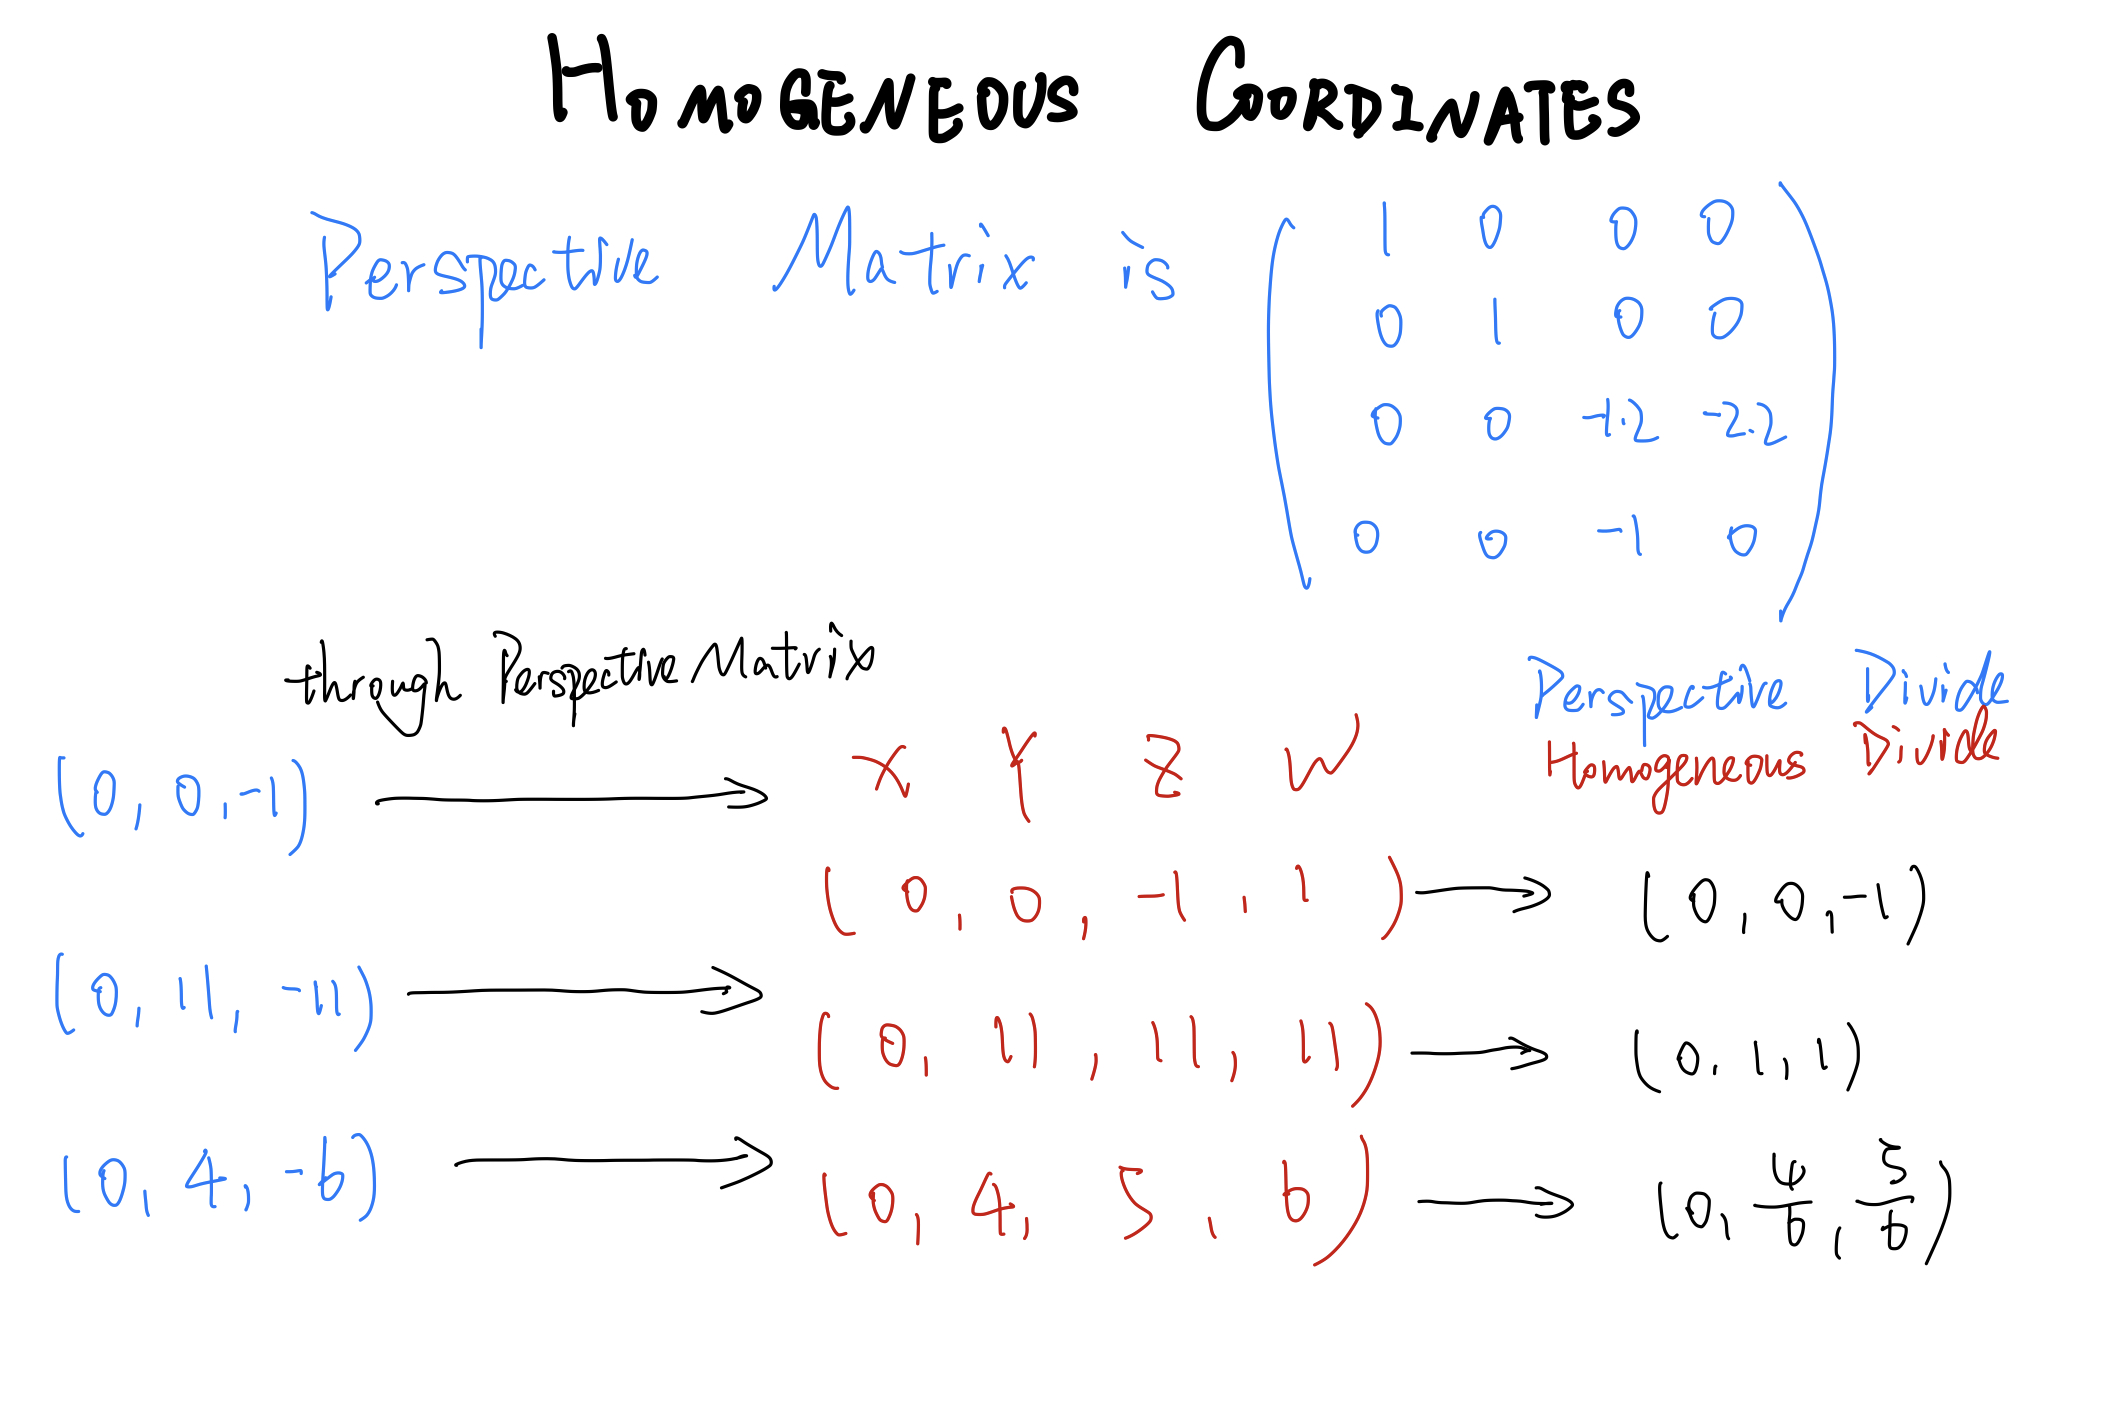 HOMOGENEOUS COORDINATES
Perspective Matrix is
1 0 0 0
0 1 0 0
0 0 -1.2 -2.2
0 0 -1 0
through Perspective Matrix
Perspective Divide
Homogeneous Divide
(0, 0, -1)
X Y Z W
(0, 0, -1, 1)
(0, 0, -1)
(0, 11, -11)
(0, 11, 11, 11)
(0. 1, 1)
(0, 4, -6)
(0, 4, 5, 6)
(0, 4/6, 5/6)